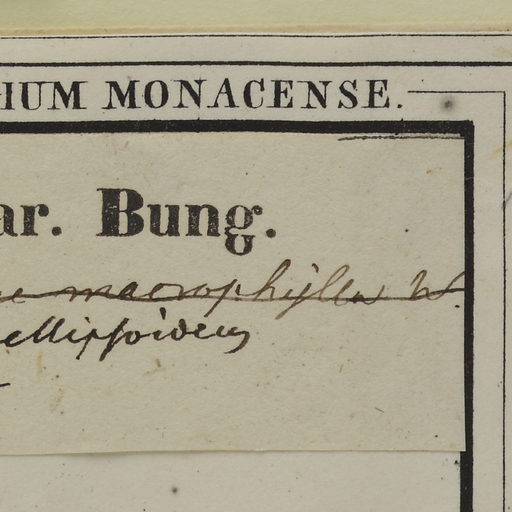 IUM MONACENSE.
ar. Bung.
macrophyllus W.
ellipsoideus